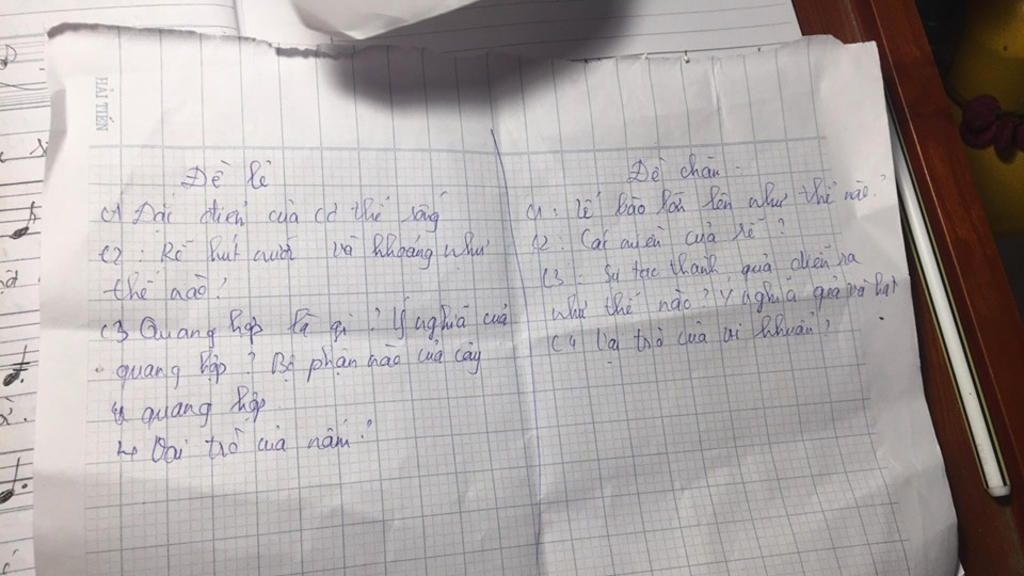 HẢI TIẾN
Đề lẻ
C1 Đại diện của cơ thể sống
C2: Rễ hút nước và khoáng như
thế nào?
C3 Quang hợp là gì? Ý nghĩa của
quang hợp? Bộ phận nào của cây
quang hợp
Vai trò của nấm?
Đề chẵn
C1: Tế bào lớn lên như thế nào?
C2: Các miền của rễ?
C3: Sự tạo thành quả diễn ra
như thế nào? Ý nghĩa quả và hạt
C4 Vai trò của vi khuẩn?